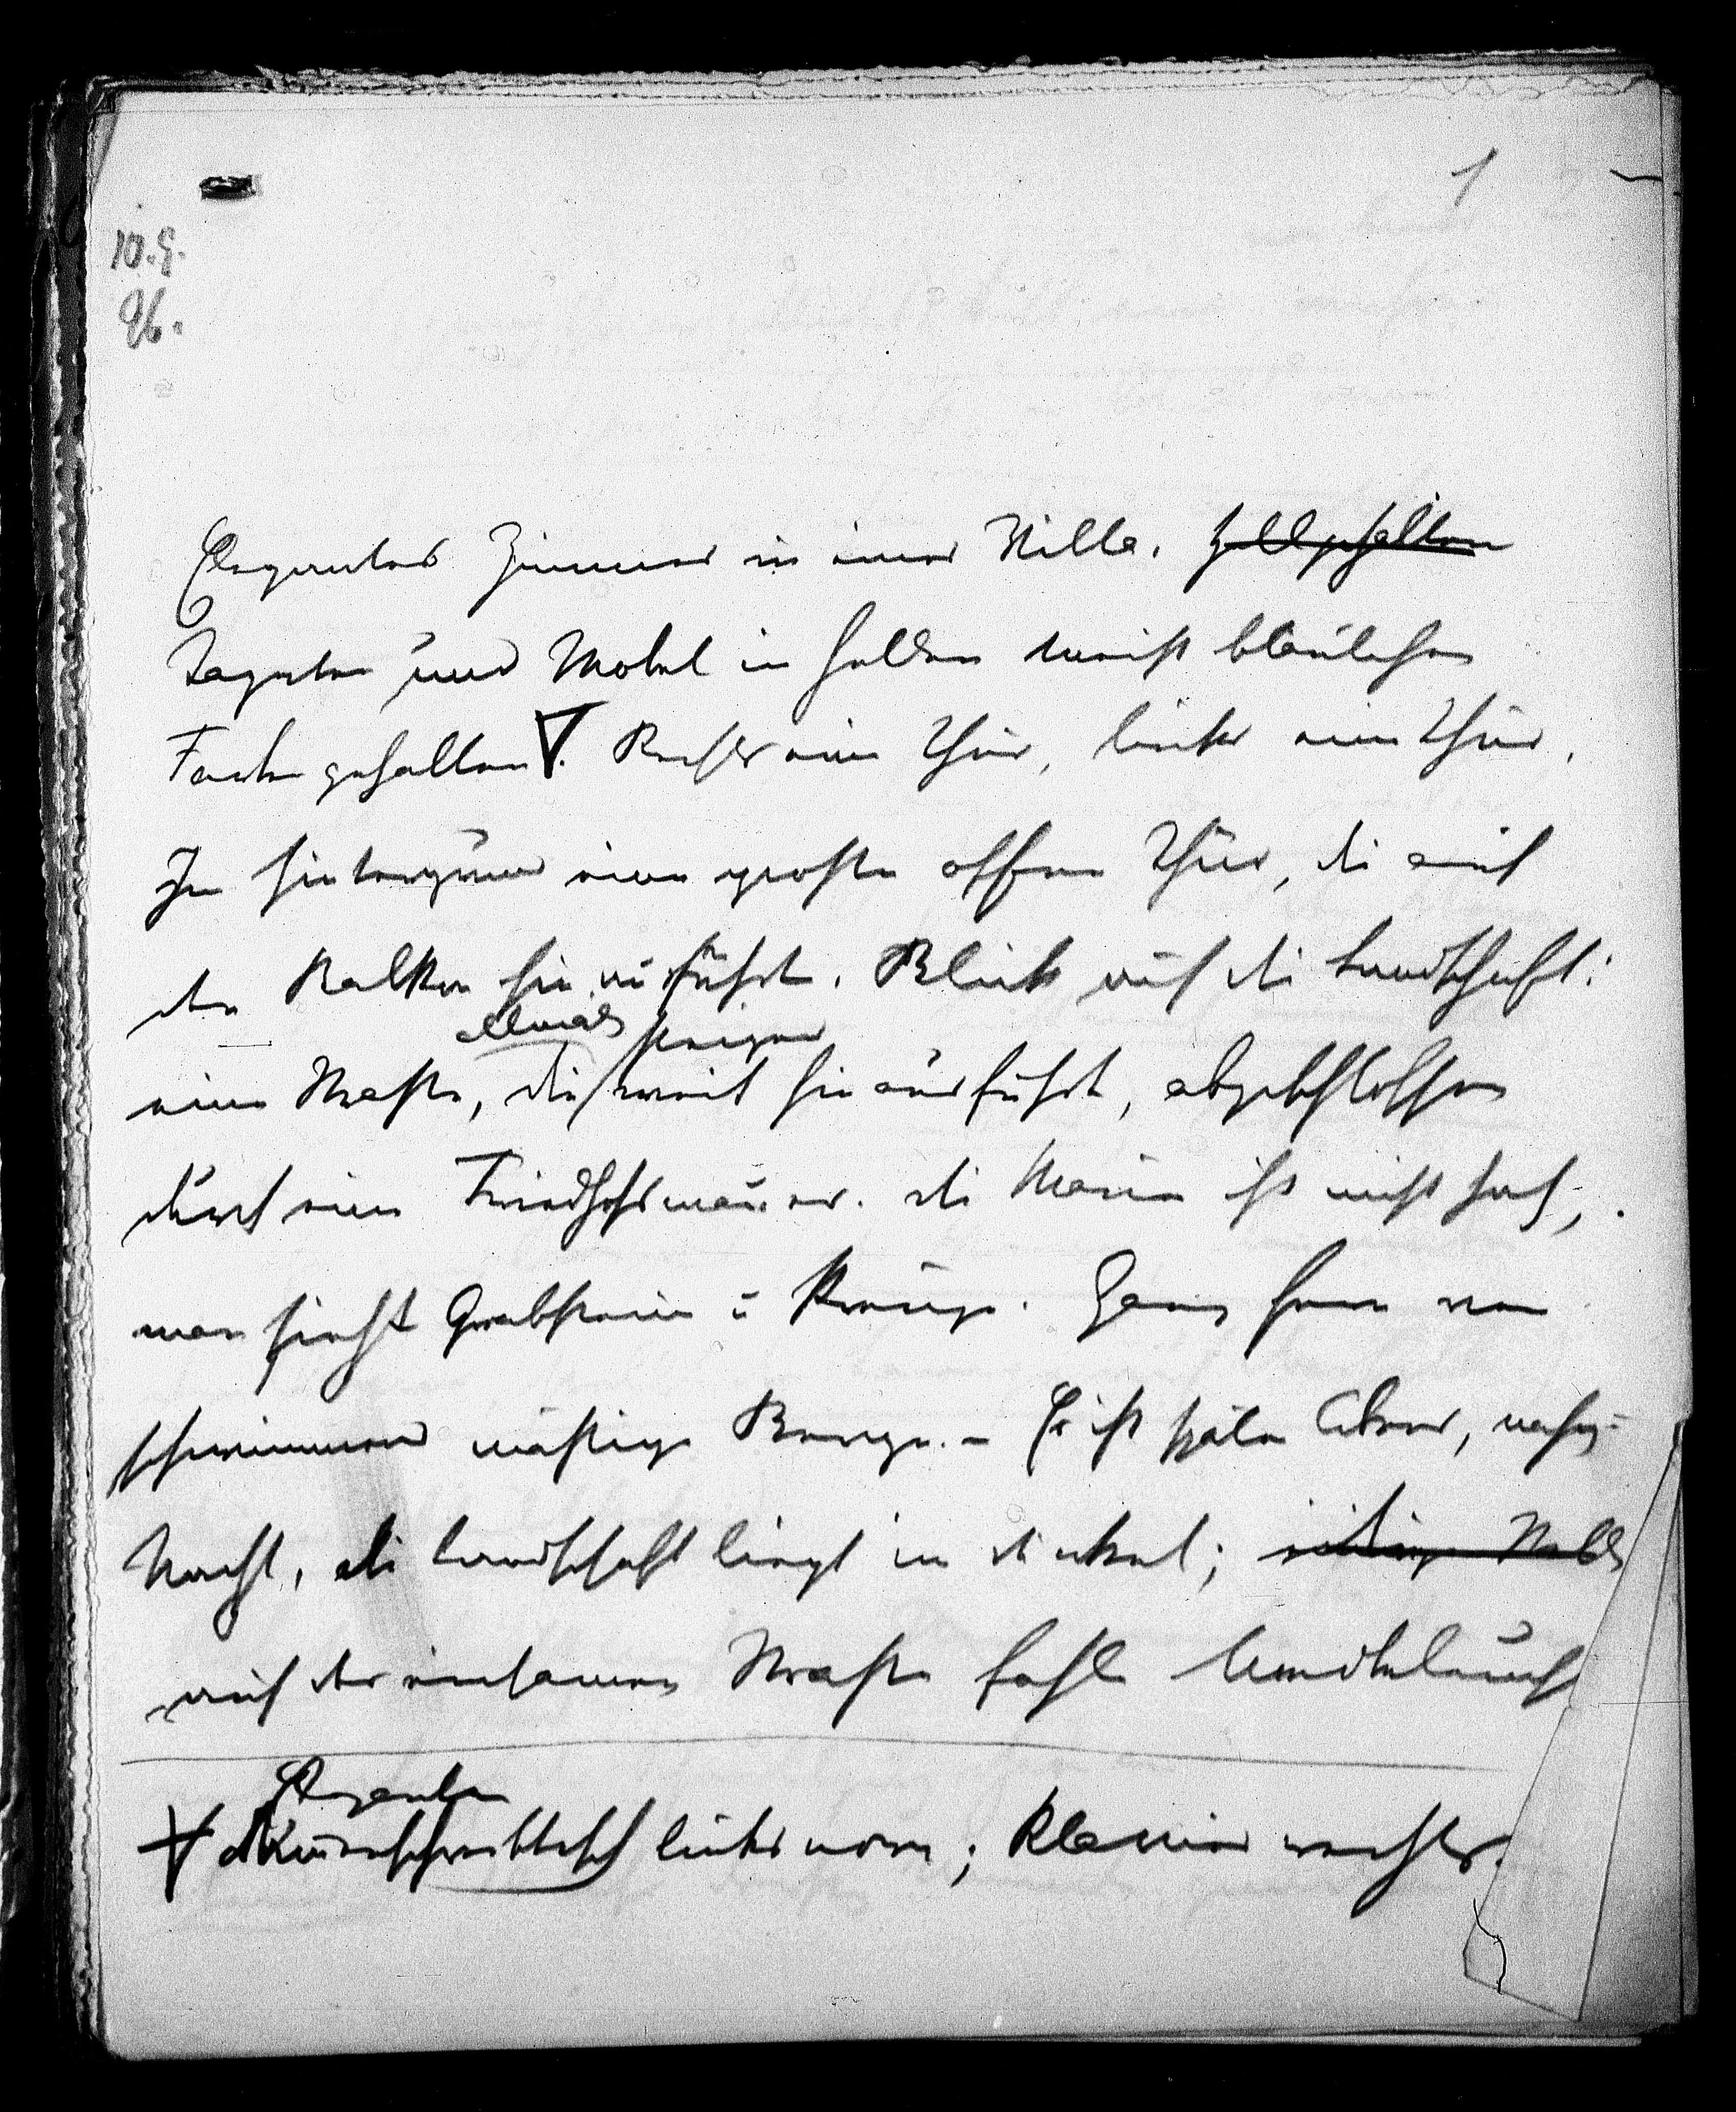 1
10.9.
96.
Elegantes Zimmer in einer Villa. Hellgehalten
Tapeten und Möbel in hellen meist bläulichen
Farben gehalten. Rechts eine Thür, links eine Thür.
Im Hintergrund eine große offene Thür, die auf
den Balkon hinausführt. Blick auf die Landschaft:
allmäh steigend
eine Straße, die weit hinausführt, abgeschlossen
durch eine Friedhofsmauer. die Mauer ist nicht hoch,
man sieht Grabsteine u Kreuze. Ganz fern ver
schwimmend mäßige Berge. – Es ist später Abend, nahezu
Nacht, die Landschaft liegt im Dunkel;
auf der einsamen Straße fahle Mondbeleucht
Eleganter
Damenschreibtisch links vorn; Klavier rechts.